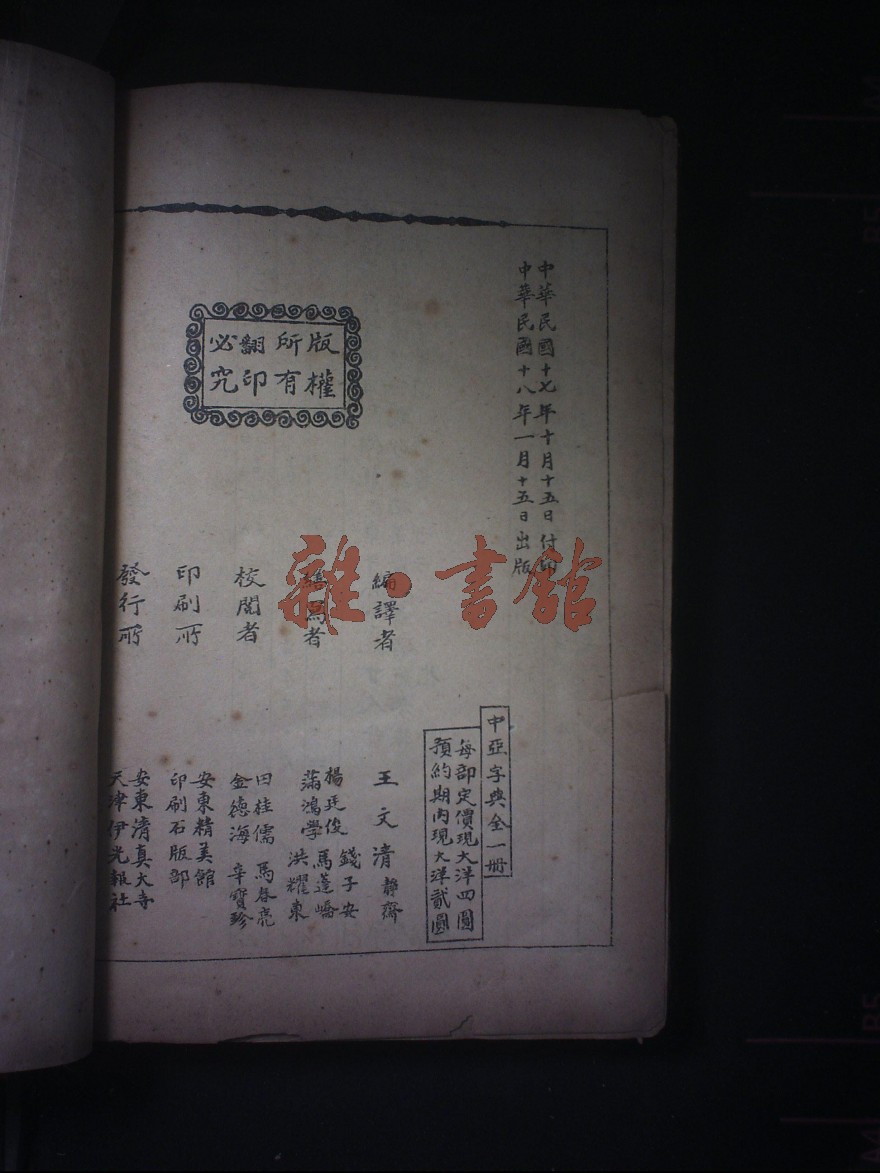 中華民國十七年十月十五日付印
中華民國十八年一月十五日出版
版權
所有
翻印
必究
中亞字典全一冊
每部定價現大洋四圓
預約期內現大洋貳圓
編譯者 王文清 靜齋
謄寫者 楊廷俊 錢子安
蒲鴻學 馬蓬嶠
洪耀東
校閱者 田桂儒 馬春亮
金德海 辛寶珍
印刷所 安東精美館
印刷石版部
發行所 安東清真大寺
天津伊光報社
雜·書館